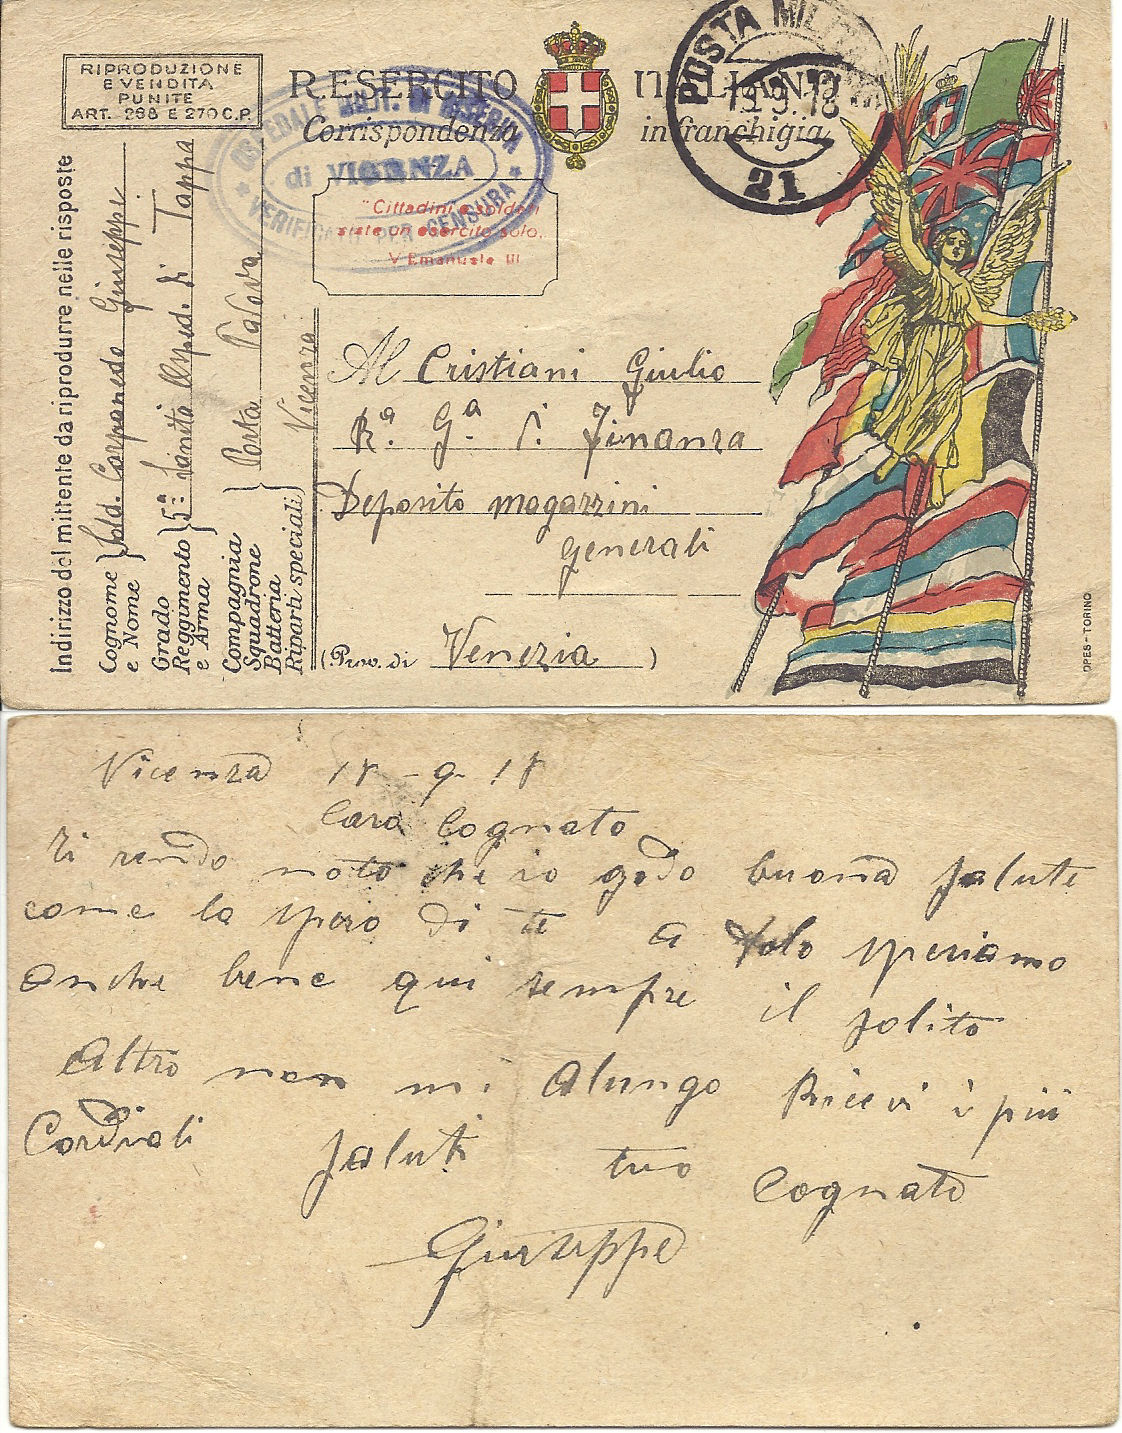 RIPRODUZIONE
E VENDITA
PUNITE
ART. 288 E 270 C.P.
R. ESERCITO ITALIANO
Corrispondenza in franchigia
POSTA MILITARE
19.9.18
21
OSPEDALE MILIT. DI RISERVA
di VICENZA
VERIFICATO PER CENSURA
"Cittadini e soldati
siate un esercito solo.
V Emanuele III
Indirizzo del mittente da riprodurre nelle risposte
Cognome e Nome } Sold. Carpanedo Giuseppe
Grado Reggimento e Arma } 5ª Sanità Osped. di Tappa
Compagnia Squadrone Batteria Riparti speciali } Porta Padova
Vicenza
Al Cristiani Giulio
Rª. Gª. di Finanza
Deposito magazzini
Generali
(Prov. di Venezia)
OPES - TORINO
Vicenza 18-9-18
Caro Cognato
Ti rendo noto che io godo buona salute
come lo spero di te a Volo speriamo
anche bene qui sempre il solito
Altro non mi alungo Ricevi i più
Cordiali saluti tuo Cognato
Giuseppe